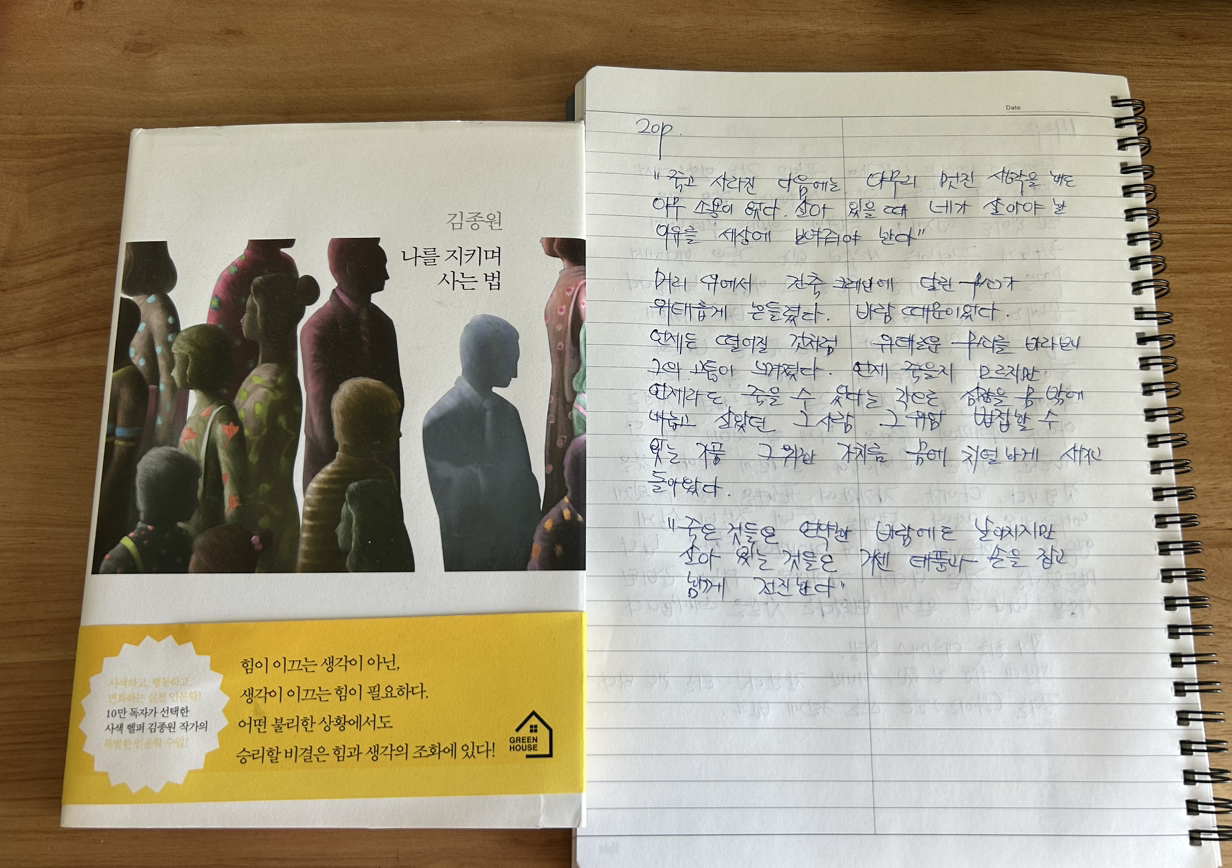 김종원
나를 지키며
사는 법
사색하고, 행동하고,
변화하는 실천 인문학!
10만 독자가 선택한
사색 헬퍼 김종원 작가의
특별한 인문학 수업!
힘이 이끄는 생각이 아닌,
생각이 이끄는 힘이 필요하다.
어떤 불리한 상황에서도
승리할 비결은 힘과 생각의 조화에 있다!
GREEN
HOUSE
Date
20p.
"죽고 사라진 다음에는 아무리 멋진 생각을 해도
아무 소용이 없다. 살아 있을 때 네가 살아야 할
이유를 세상에 보여줘야 한다"
머리 위에서 건축 크레인에 달린 추가
위태롭게 흔들렸다. 바람 때문이었다.
언제든 떨어질 것처럼 위태로운 추를 바라보니
그의 고통이 느껴졌다. 언제 죽을지 모르지만
언제라도 죽을 수 있다는 각오로 심장을 몸 밖에
내놓고 살았던 그 사람. 그처럼 밥집할 수
있는 가공 그 위한 가치를 몸에 치열하게 새기고
돌아왔다.
"죽은 것들은 연약한 바람에도 날아가지만
살아 있는 것들은 거센 태풍과 손을 잡고
함께 전진한다"